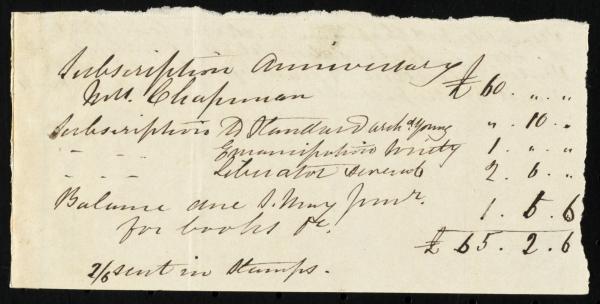 Subscription Anniversary
Mrs. Chapman £ 60 . „ . „
Subscription to Standard Archd Young „ . 10 . „
- - Emancipation Society 1 . „ . „
- - Liberator several 2 . 6 . „
Balance due S. May Junr.
for books &c. 1 . 6 . 6
£ 65 . 2 . 6
2/6 sent in stamps.